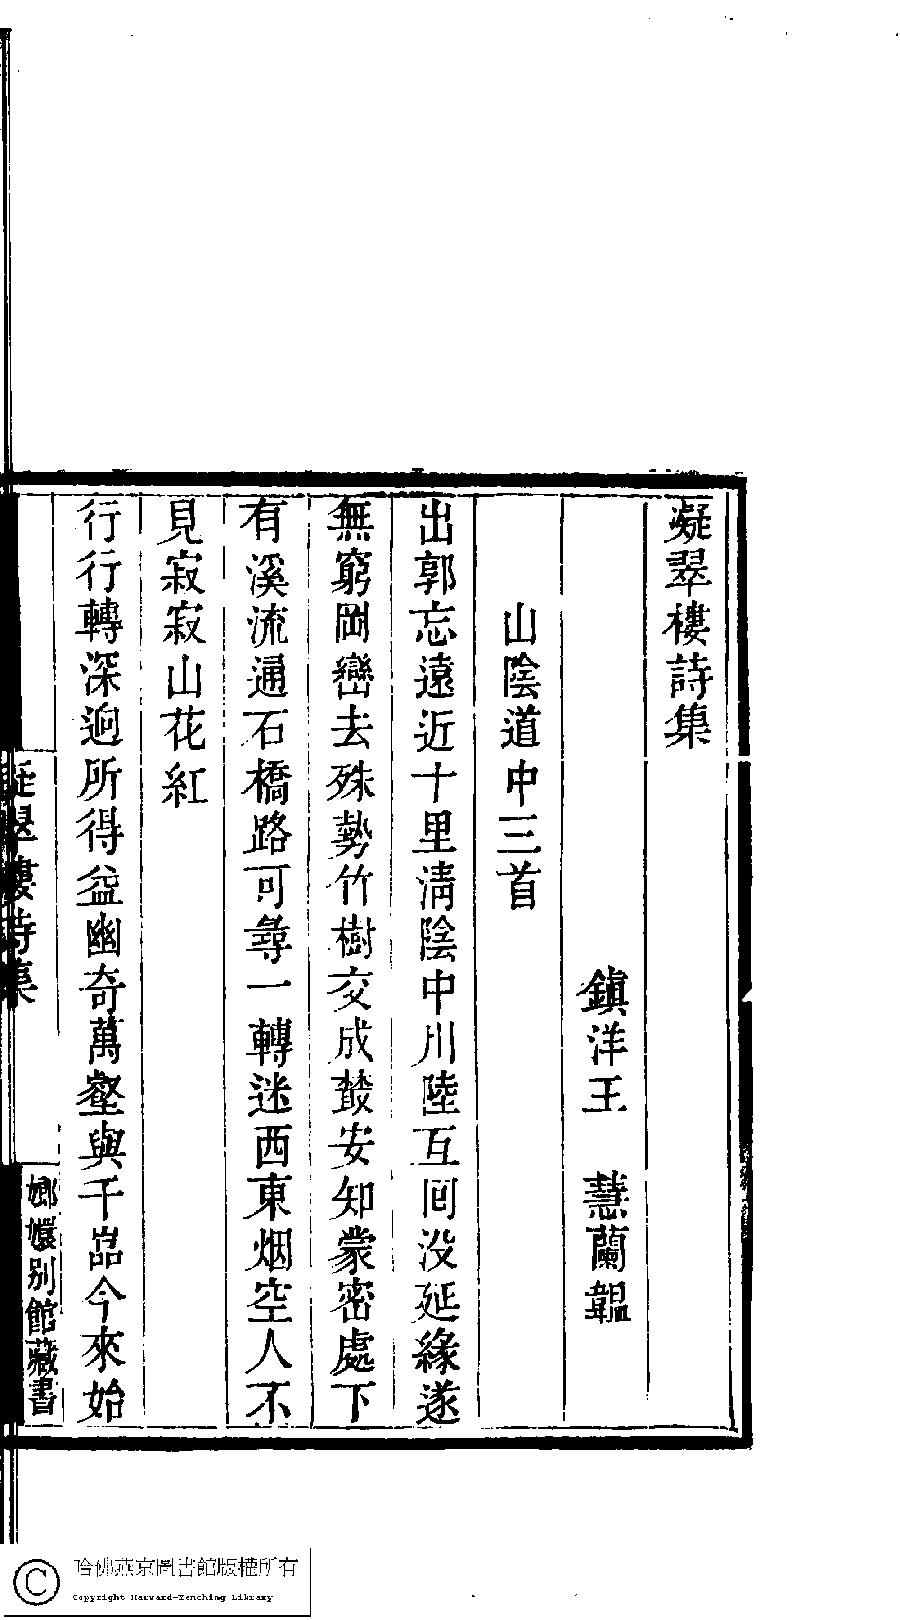 凝翠樓詩集
鎮洋王　慧蘭韞
山陰道中三首
出郭忘遠近十里淸陰中川陸互囘没延緣遂
無窮岡巒去殊勢竹樹交成叢安知蒙密處下
有溪流通石橋路可尋一轉迷西東烟空人不
見寂寂山花紅
行行轉深迥所得益幽奇萬壑與千嵓今來始
凝翠樓詩集
嫏嬛别館藏書
哈佛燕京圖書館版權所有
Copyright Harvard-Yenching Library